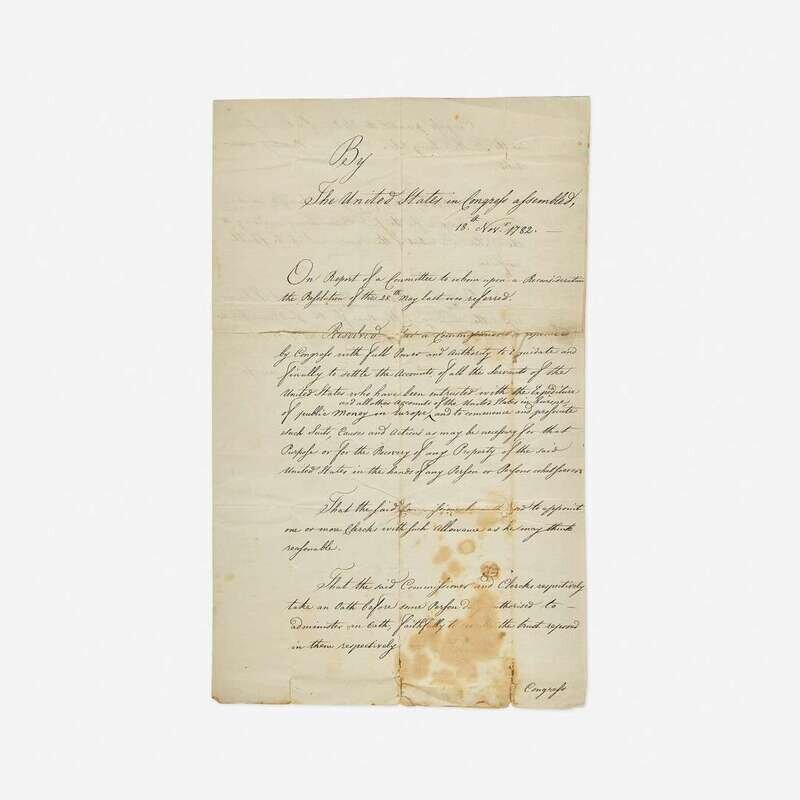 By
The United States in Congress assembled,
18th Novr. 1782. —
On Report of a Committee to whom upon a Reconsideration
the Resolution of the 28th May last was referred.
Resolved that a Commissioner appointed
by Congress with full Power and Authority to liquidate and
finally to settle the Accounts of all the Servants of the
United States who have been intrusted with the Expenditure
and all other Accounts of the United States in Europe
of public Money in Europe, and to commence and prosecute
such Suits, Causes and Actions as may be necessary for that
Purpose or for the Recovery of any Property of the said
United States in the hands of any Person or Persons whatsoever
That the said to appoint
one or more Clerks with such Allowance as he may think
reasonable.
That the said Commissioner and Clerks respectively
take an Oath before some Person authorised to —
administer an Oath, faithfully to the trust reposed
in them respectively
Congress